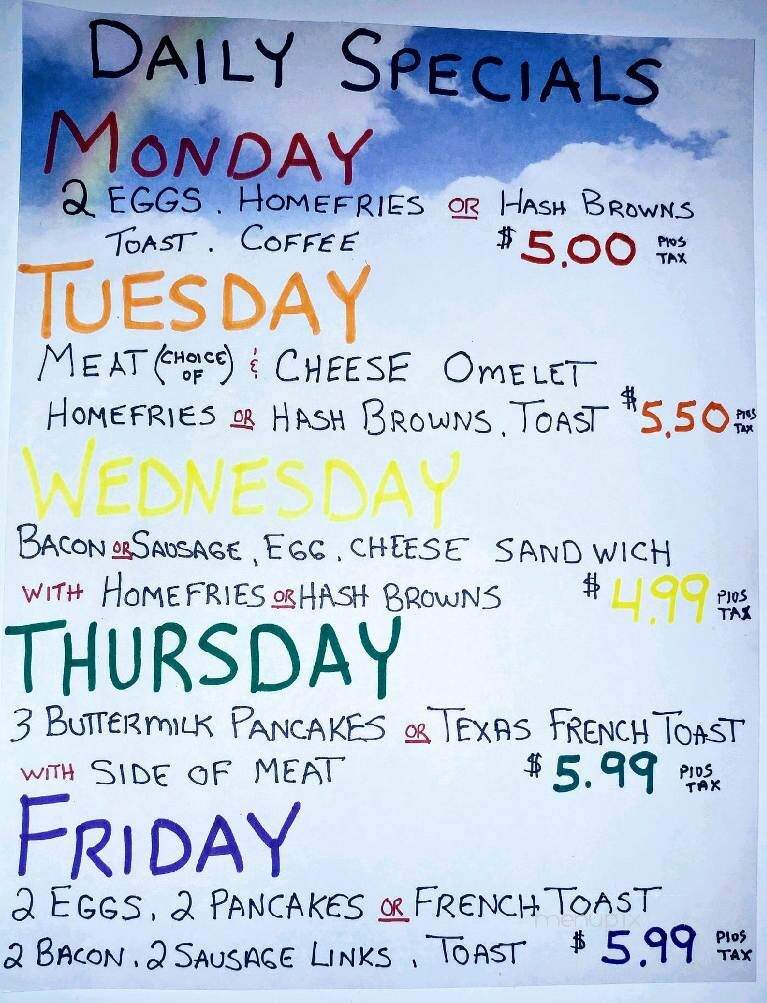 DAILY SPECIALS
MONDAY
2 EGGS. HOMEFRIES OR HASH BROWNS
TOAST. COFFEE $5.00 PlUS TAX
TUESDAY
MEAT (CHOICE OF) & CHEESE OMELET
HOMEFRIES OR HASH BROWNS, TOAST $5.50 PlUS TAX
WEDNESDAY
BACON OR SAUSAGE, EGG, CHEESE SANDWICH
WITH HOMEFRIES OR HASH BROWNS $4.99 PlUS TAX
THURSDAY
3 BUTTERMILK PANCAKES OR TEXAS FRENCH TOAST
WITH SIDE OF MEAT $5.99 PlUS TAX
FRIDAY
2 EGGS, 2 PANCAKES OR FRENCH TOAST
menupix
2 BACON, 2 SAUSAGE LINKS, TOAST $5.99 PlUS TAX